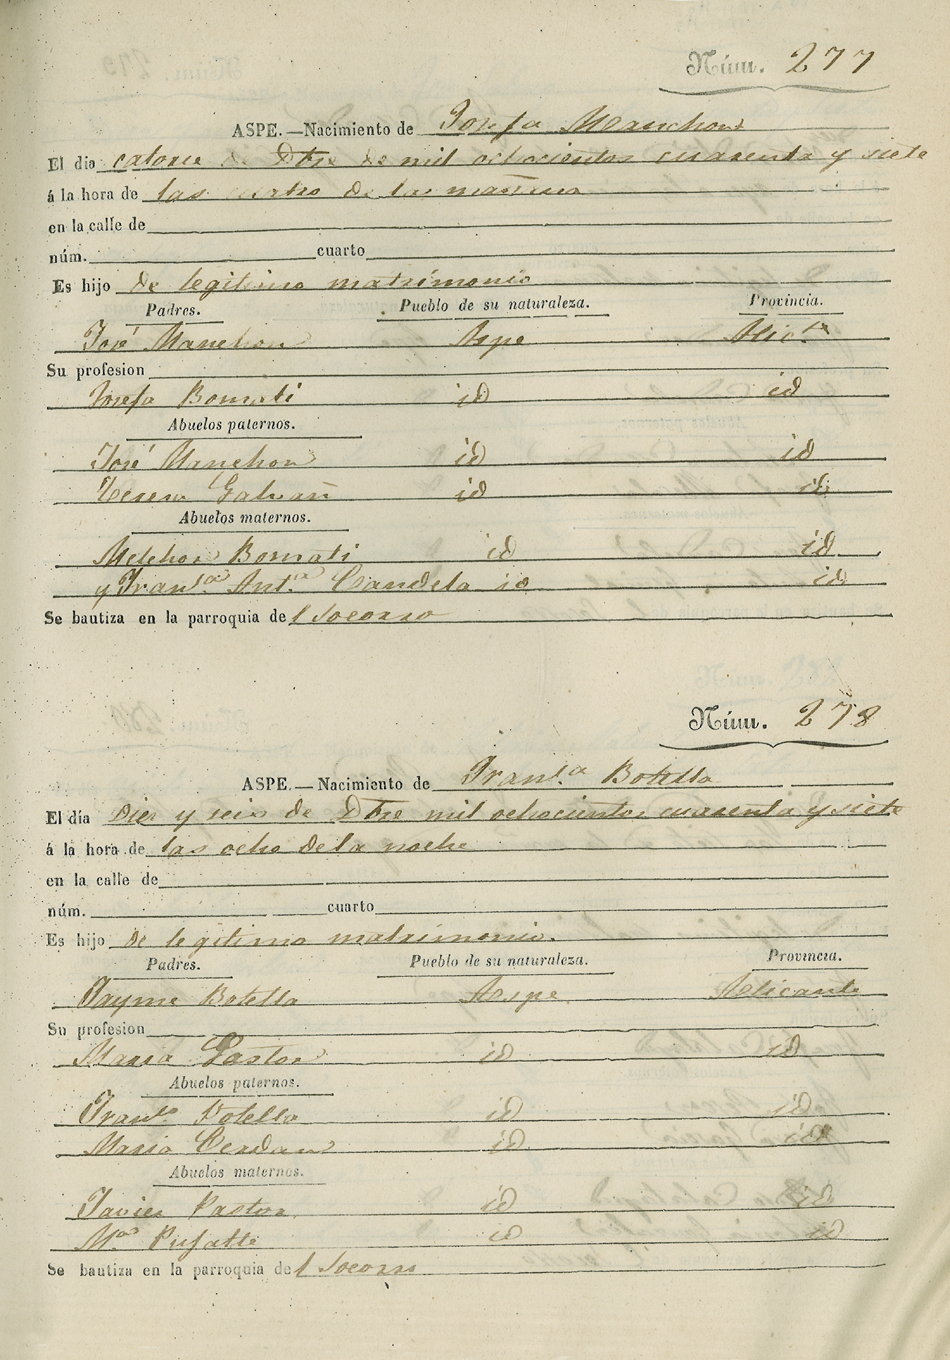 Núm. 277
ASPE.—Nacimiento de Josefa Manchon
El dia catorce de Dbre de mil ochocientos cuarenta y siete
á la hora de las cuatro de la mañana
en la calle de
núm. cuarto
Es hijo de legitimo matrimonio
Padres. Pueblo de su naturaleza. Provincia.
José Manchon Aspe Alicte
Su profesion
Josefa Bornati id id
Abuelos paternos.
José Manchon id id
Teresa Galvañ id id
Abuelos maternos.
Melchor Bornati id id
y Franca Anta Candela id id
Se bautiza en la parroquia del Socorro
Núm. 278
ASPE.—Nacimiento de Franca Botella
El día Dies y seis de Dbre mil ochocientos cuarenta y siete
á la hora de las ocho de la noche
en la calle de
núm. cuarto
Es hijo de legitimo matrimonio.
Padres. Pueblo de su naturaleza. Provincia.
Jayme Botella Aspe Alicante
Su profesion
Maria Pastor id id
Abuelos paternos.
Franco Botella id id
Maria Cerdan id id
Abuelos maternos.
Javier Pastor id id
Ma id id
Se bautiza en la parroquia del Socorro